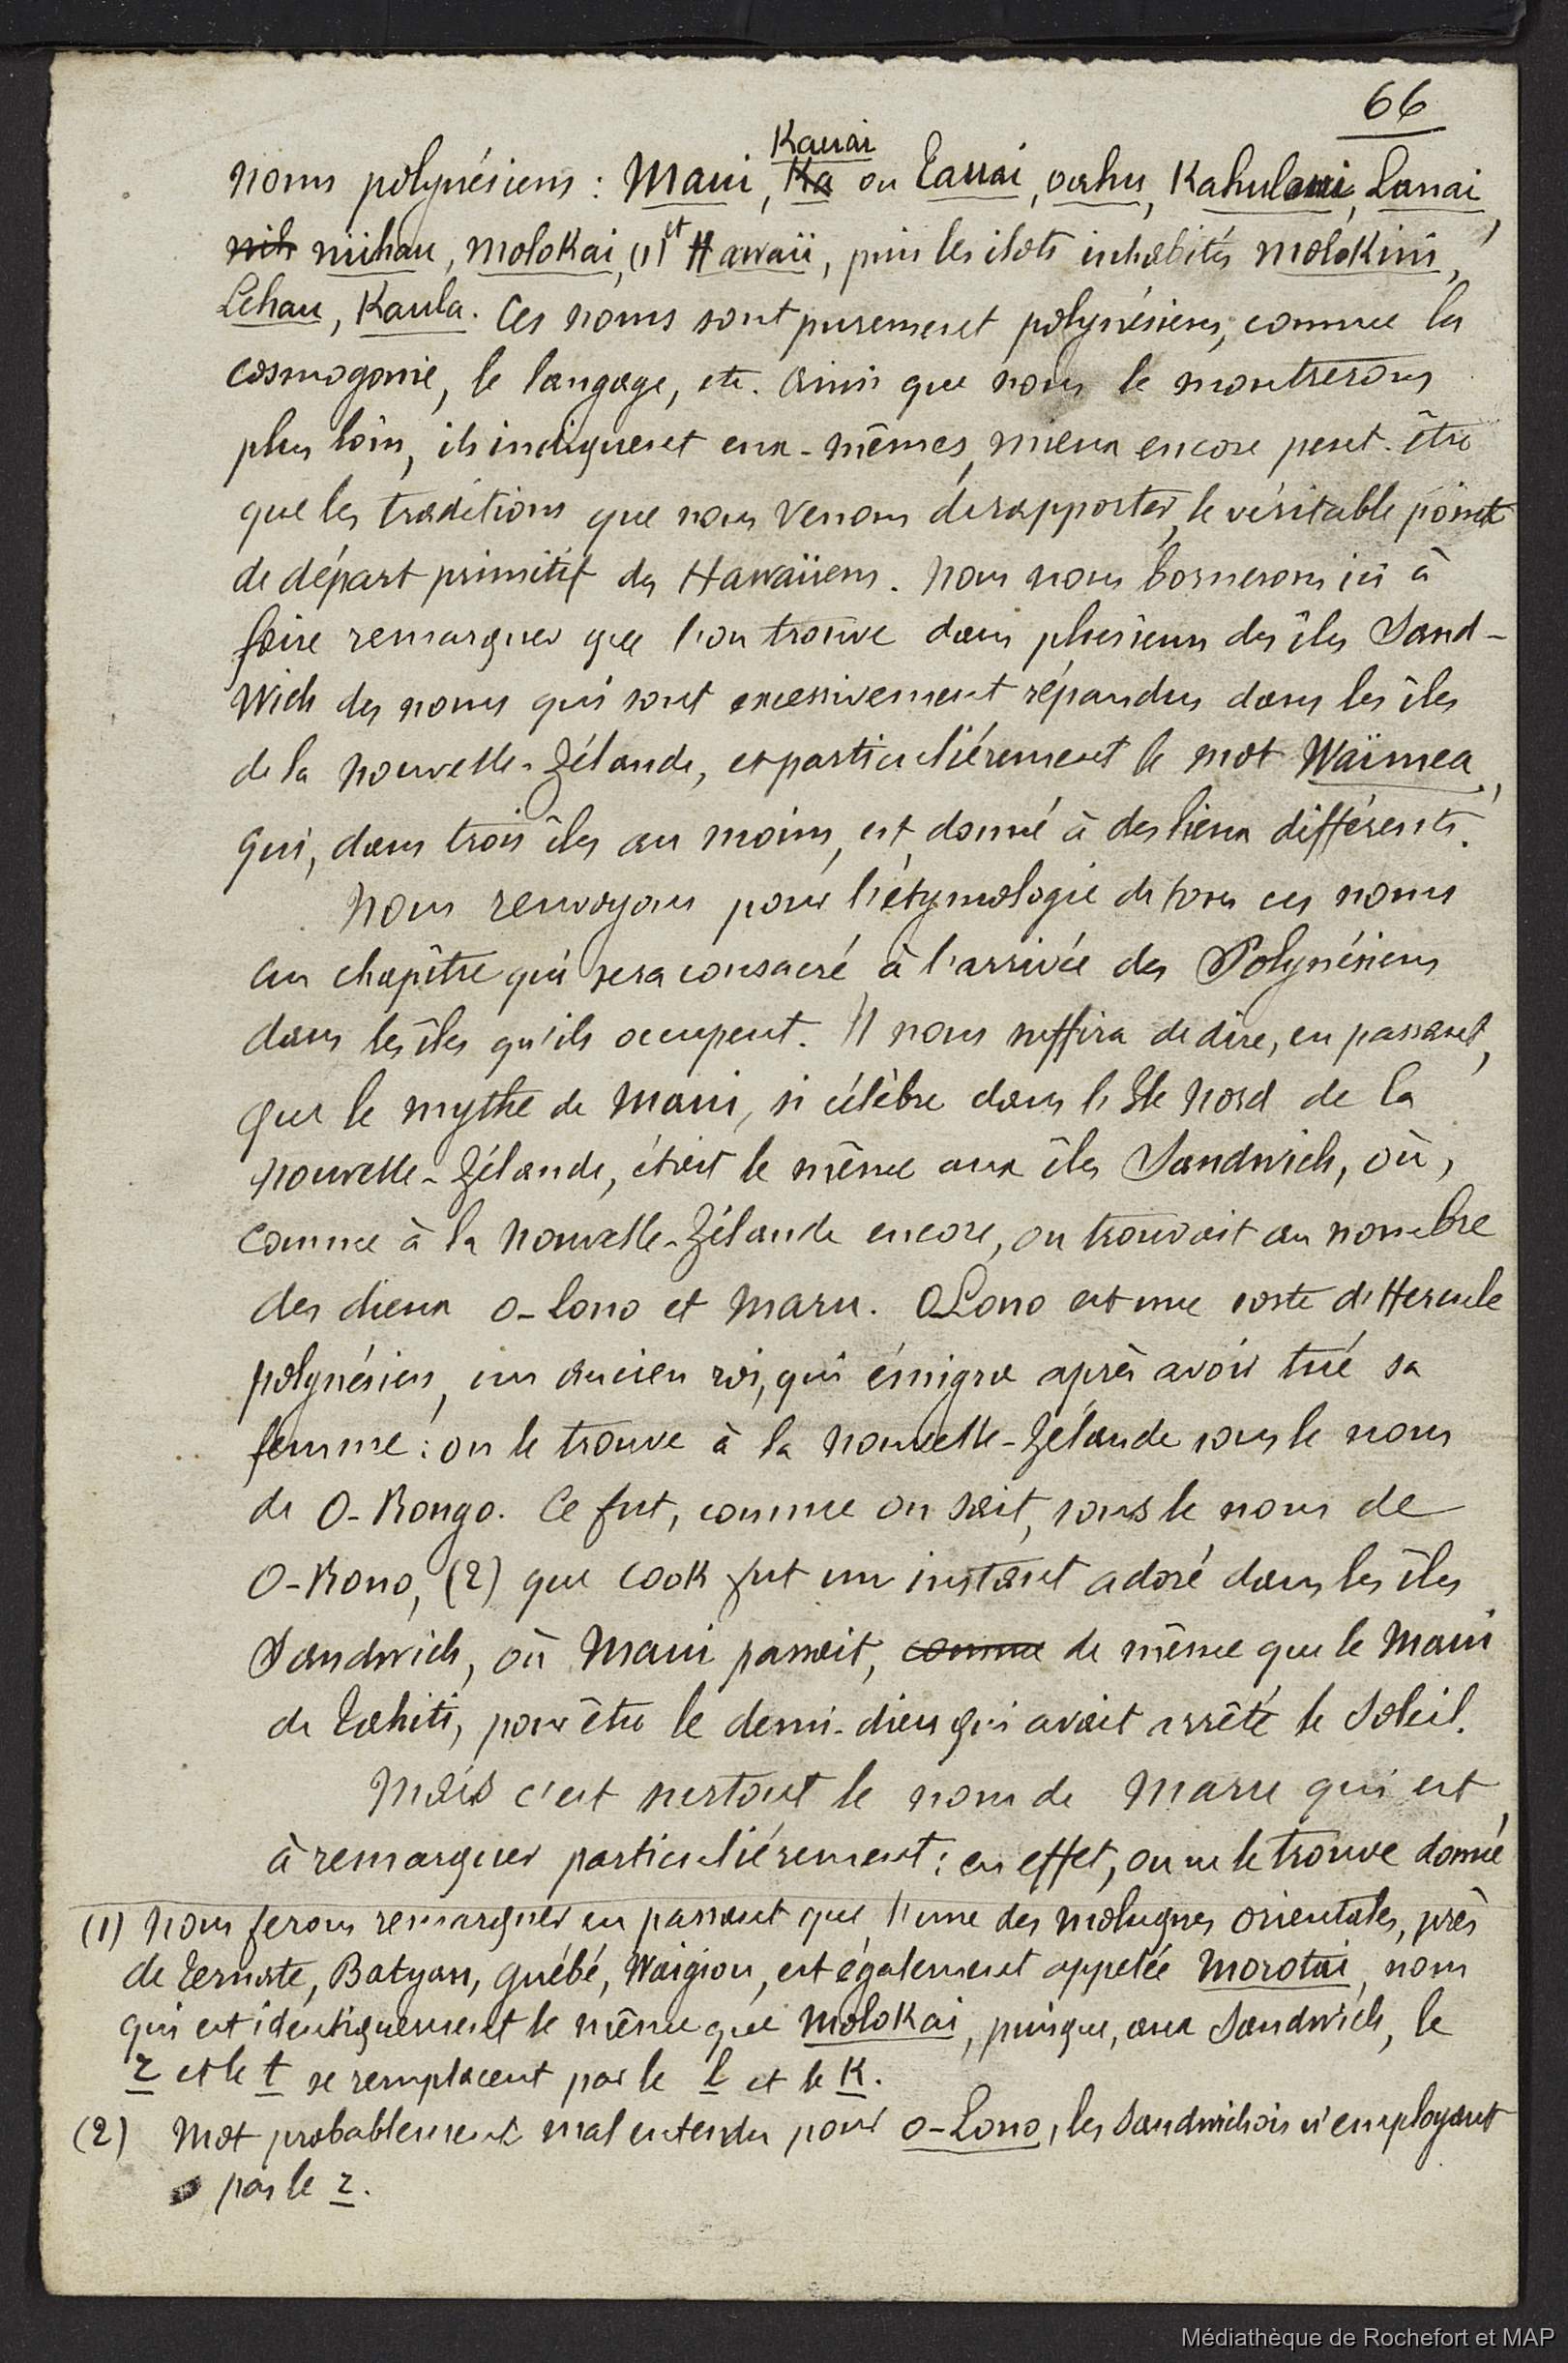 66
Kauai
noms polynésiens : Maui, Ka ou Tauai, oahu, Kahulaui, Lanai,
nih niihau, Molokai, (1) et Hawaii, puis les ilots inhabités Molokini,
Lehau, Kaula. Ces noms sont purement polynésiens, comme la
cosmogonie, le langage, etc. Ainsi que nous le montrerons
plus loin, ils indiquent eux-mêmes, mieux encore peut-être
que les traditions que nous venons de rapporter, le véritable point
de départ primitif des Hawaïiens. Nous nous bornerons ici à
faire remarquer que l'on trouve dans plusieurs des îles Sand-
wich des noms qui sont excessivement répandus dans les îles
de la Nouvelle-Zélande, et particuliérement le mot Waïmea,
qui, dans trois îles au moins, est donné à des lieux différents.
Nous renvoyons pour l'étymologie de tous ces noms
au chapître qui sera consacré à l'arrivée des Polynésiens
dans les îles qu'ils occupent. Il nous suffira de dire, en passant,
que le mythe de Maui, si célèbre dans l'Ile Nord de la
Nouvelle-Zélande, était le même aux îles Sandwich, où,
comme à la Nouvelle-Zélande encore, on trouvait au nombre
des dieux o-Lono et Maru. O Lono est une sorte d'Hercule
polynésien, un ancien roi, qui émigra après avoir tué sa
femme : on le trouve à la Nouvelle-Zélande sous le nom
de O-Rongo. Ce fut, comme on sait, sous le nom de
O-Rono, (2) que Cook fut un instant adoré dans les îles
Sandwich, où Maui passait, comme de même que le Maui
de Tahiti, pour être le demi-dieu qui avait arrêté le Soleil.
Mais c'est surtout le nom de Maru qui est,
à remarquer particuliérement : en effet, on ne le trouve donné
(1) Nous ferons remarquer en passant que l'une des Moluques orientales, près
de Ternate, Batyan, Guébé, Waigiou, est également appelée Morotai, nom
qui est identiquement le même que Molokai, puisque, aux Sandwich, le
r et le t se remplacent par le l et le K.
(2) Mot probablement mal entendu pour o-Lono, les Sandwichois n'employant
pas le r.
Médiathèque de Rochefort et MAP